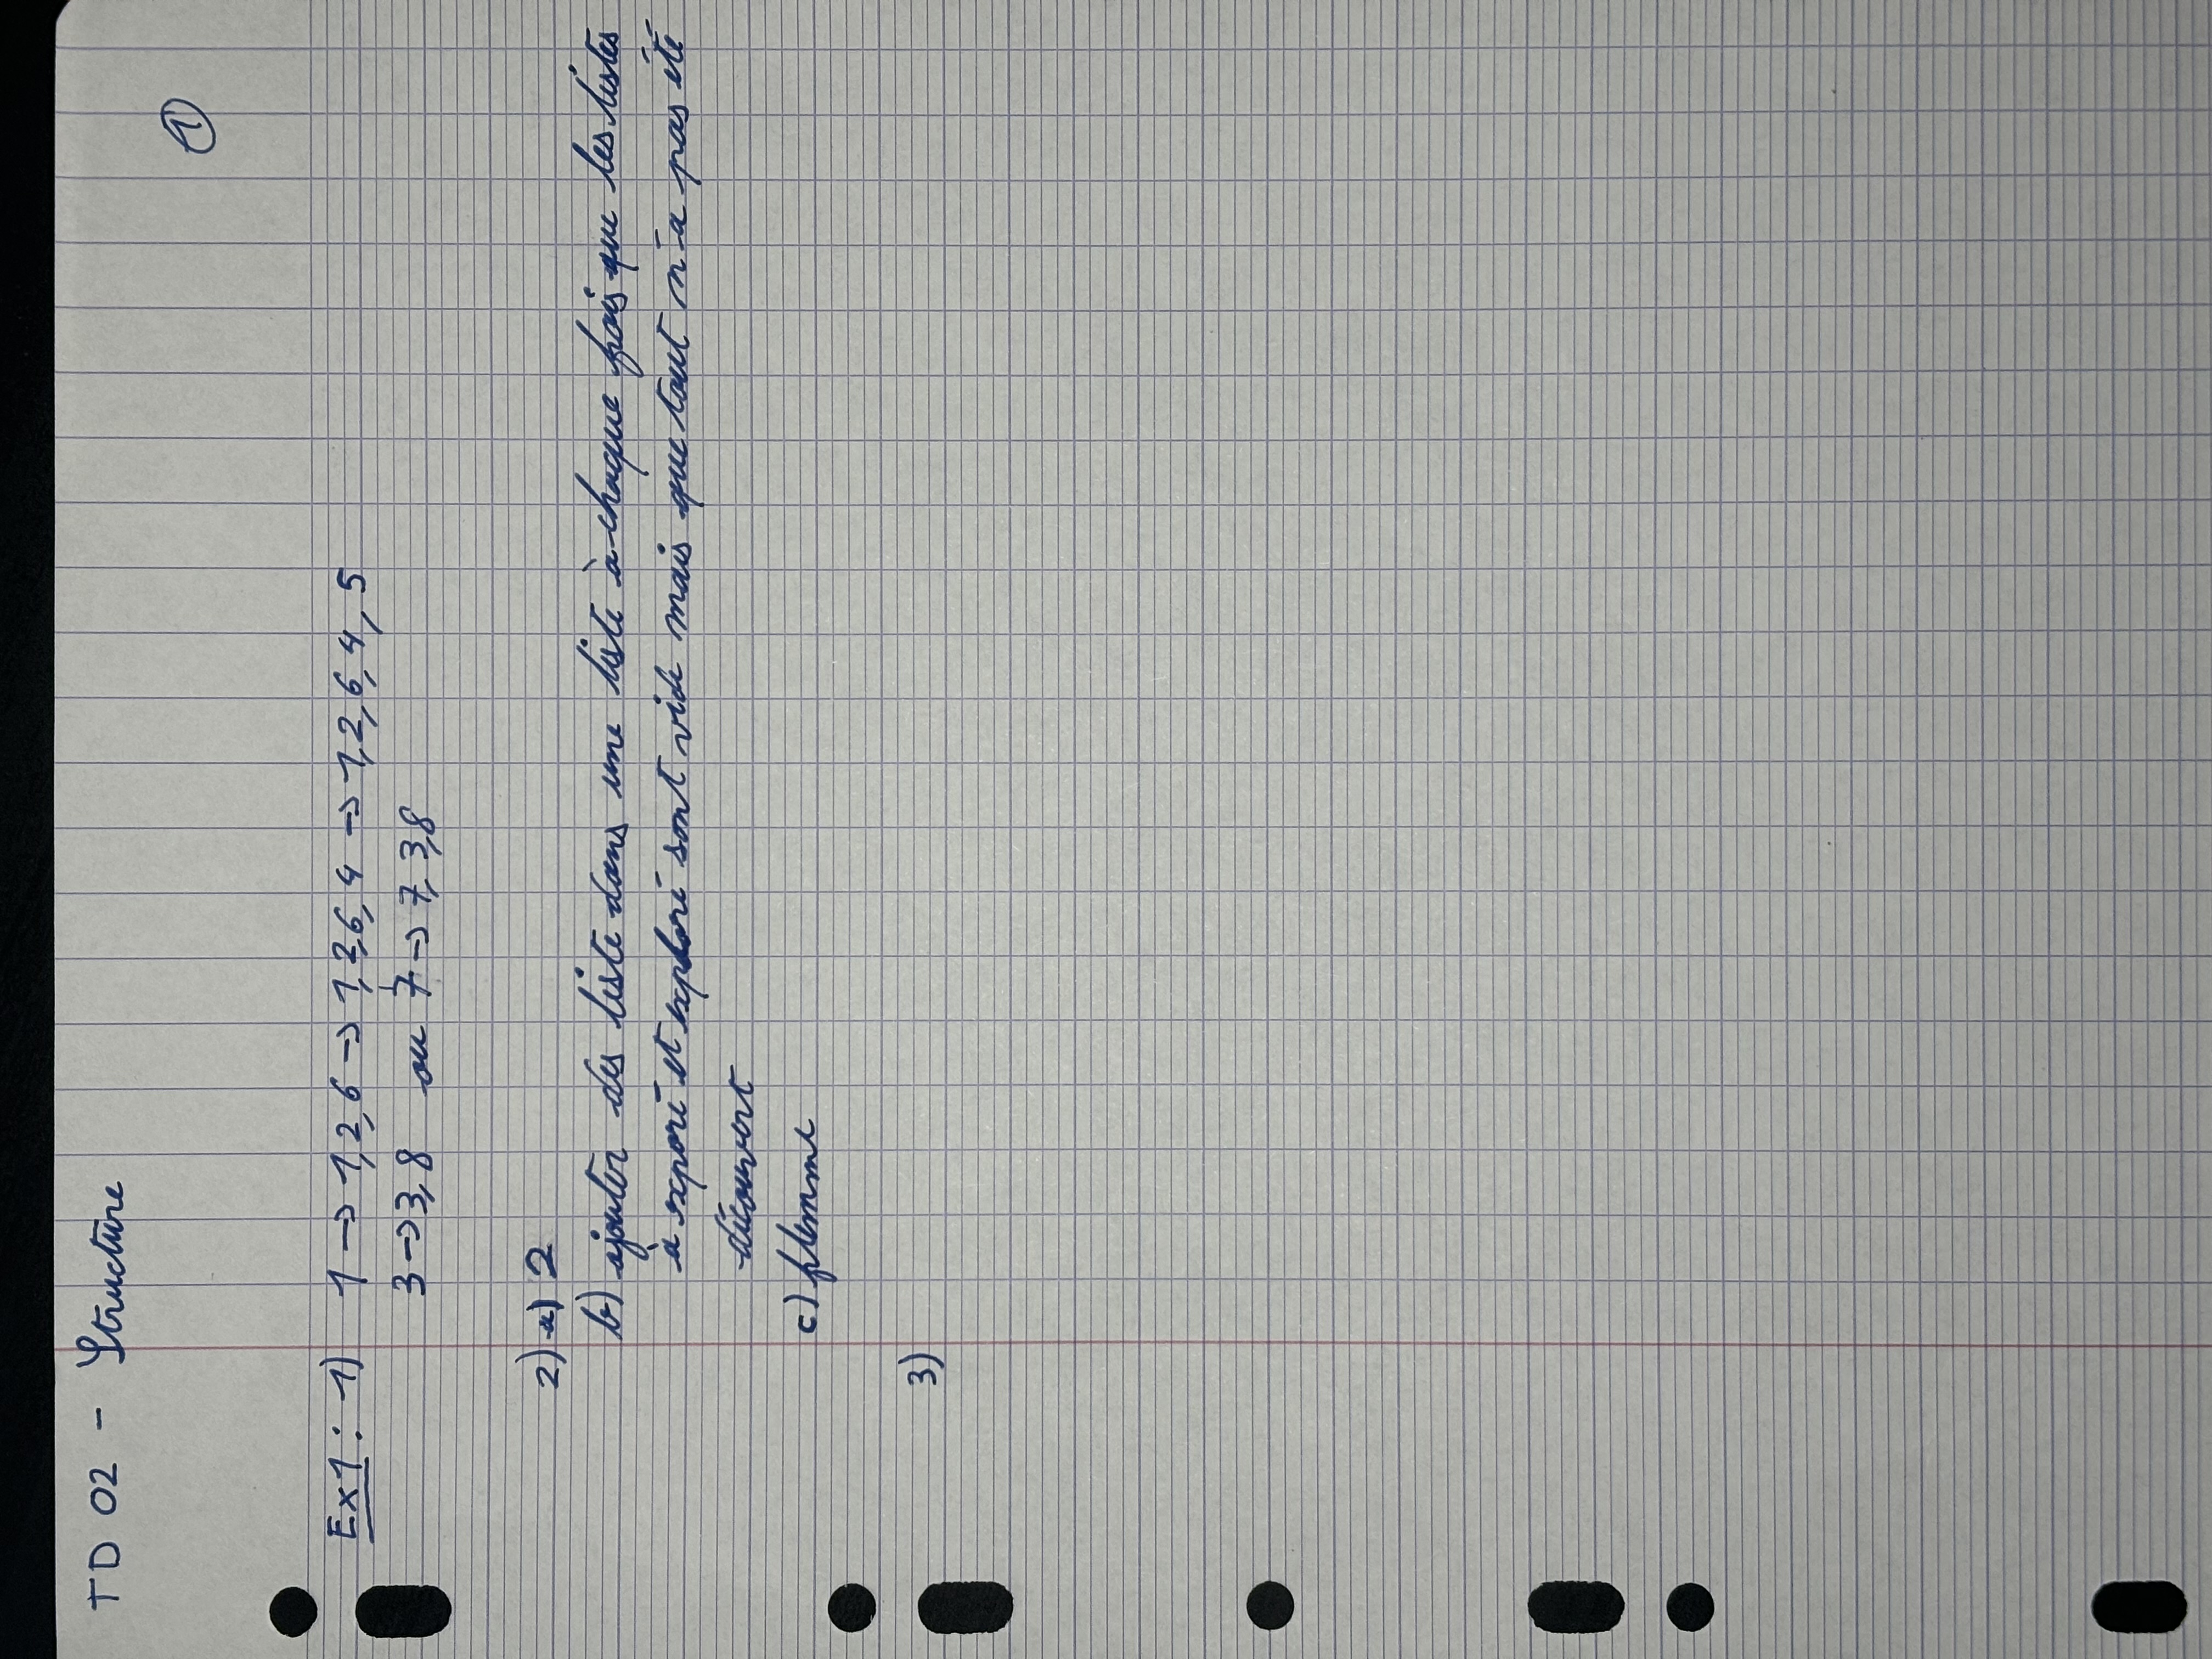 TD 02 - Structure
①
Ex1: 1) 1 → 1,2,6 → 1,2,6,4 → 1,2,6,4,5
3 → 3,8 ou 7 → 7,3,8
2) a) 2
b) ajouter des liste dans une liste à chaque fois que les listes
à exporé et exploré sont vide mais que tout n'a pas été
découvert
c) flemme
3)